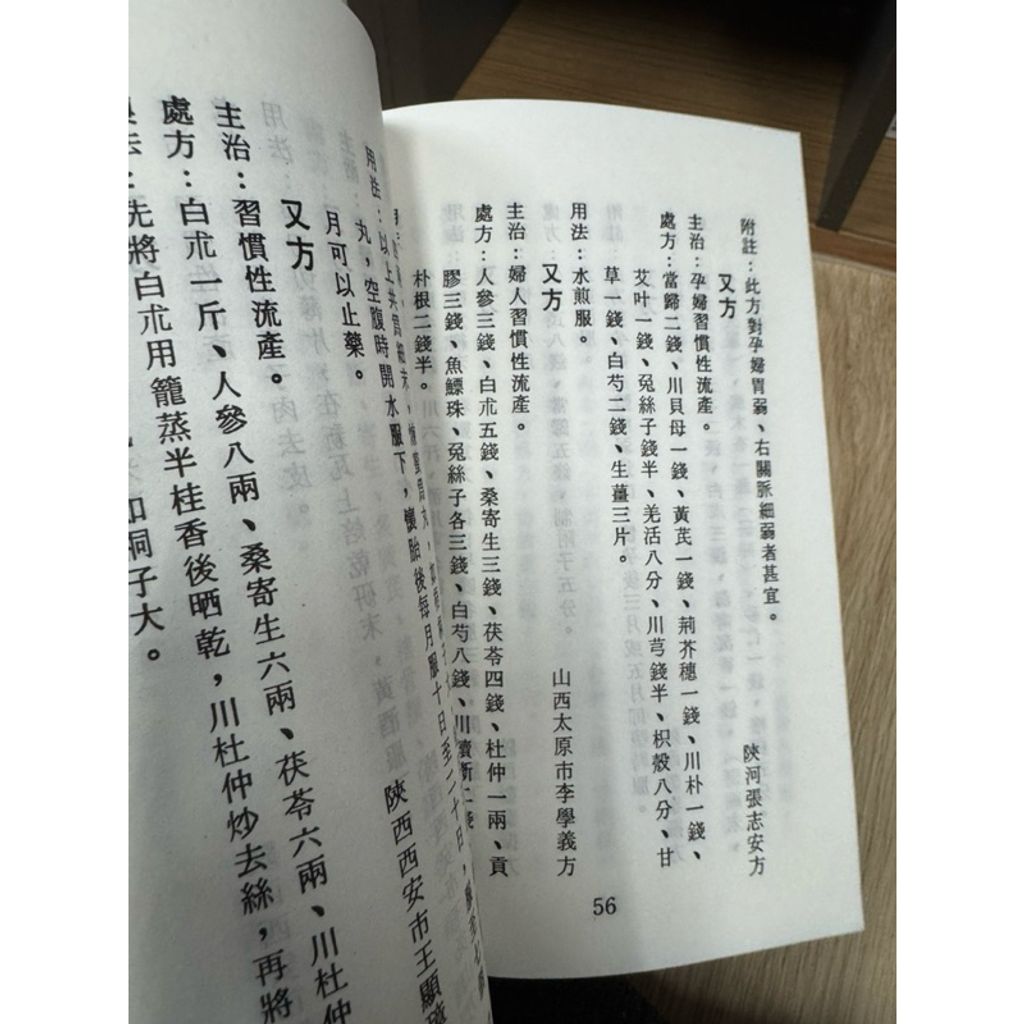 附註：此方對孕婦胃弱、右關脈細弱者甚宜。
又方
陝河張志安方
主治：孕婦習慣性流產。
處方：當歸二錢、川貝母一錢、黃芪一錢、荊芥穗一錢、川朴一錢、
艾叶一錢、兔絲子錢半、羌活八分、川芎錢半、枳殼八分、甘
草一錢、白芍二錢、生薑三片。
用法：水煎服。
又方
山西太原市李學義方
主治：婦人習慣性流產。
處方：人參三錢、白朮五錢、桑寄生三錢、茯苓四錢、杜仲一兩、貢
膠三錢、魚鰾珠、兔絲子各三錢、白芍八錢、川續斷二錢
朴根二錢半。
用法：以上共爲細末，煉蜜爲丸，
56
丸，空腹時開水服下，懷胎後每月服十日至二十日，
月可以止藥。
又方
陝西西安市王顯
主治：習慣性流產。
處方：白朮一斤、人參八兩、桑寄生六兩、茯苓六兩、川杜仲
法：先將白朮用籠蒸半桂香後晒乾，川杜仲炒去絲，再將
如桐子大。